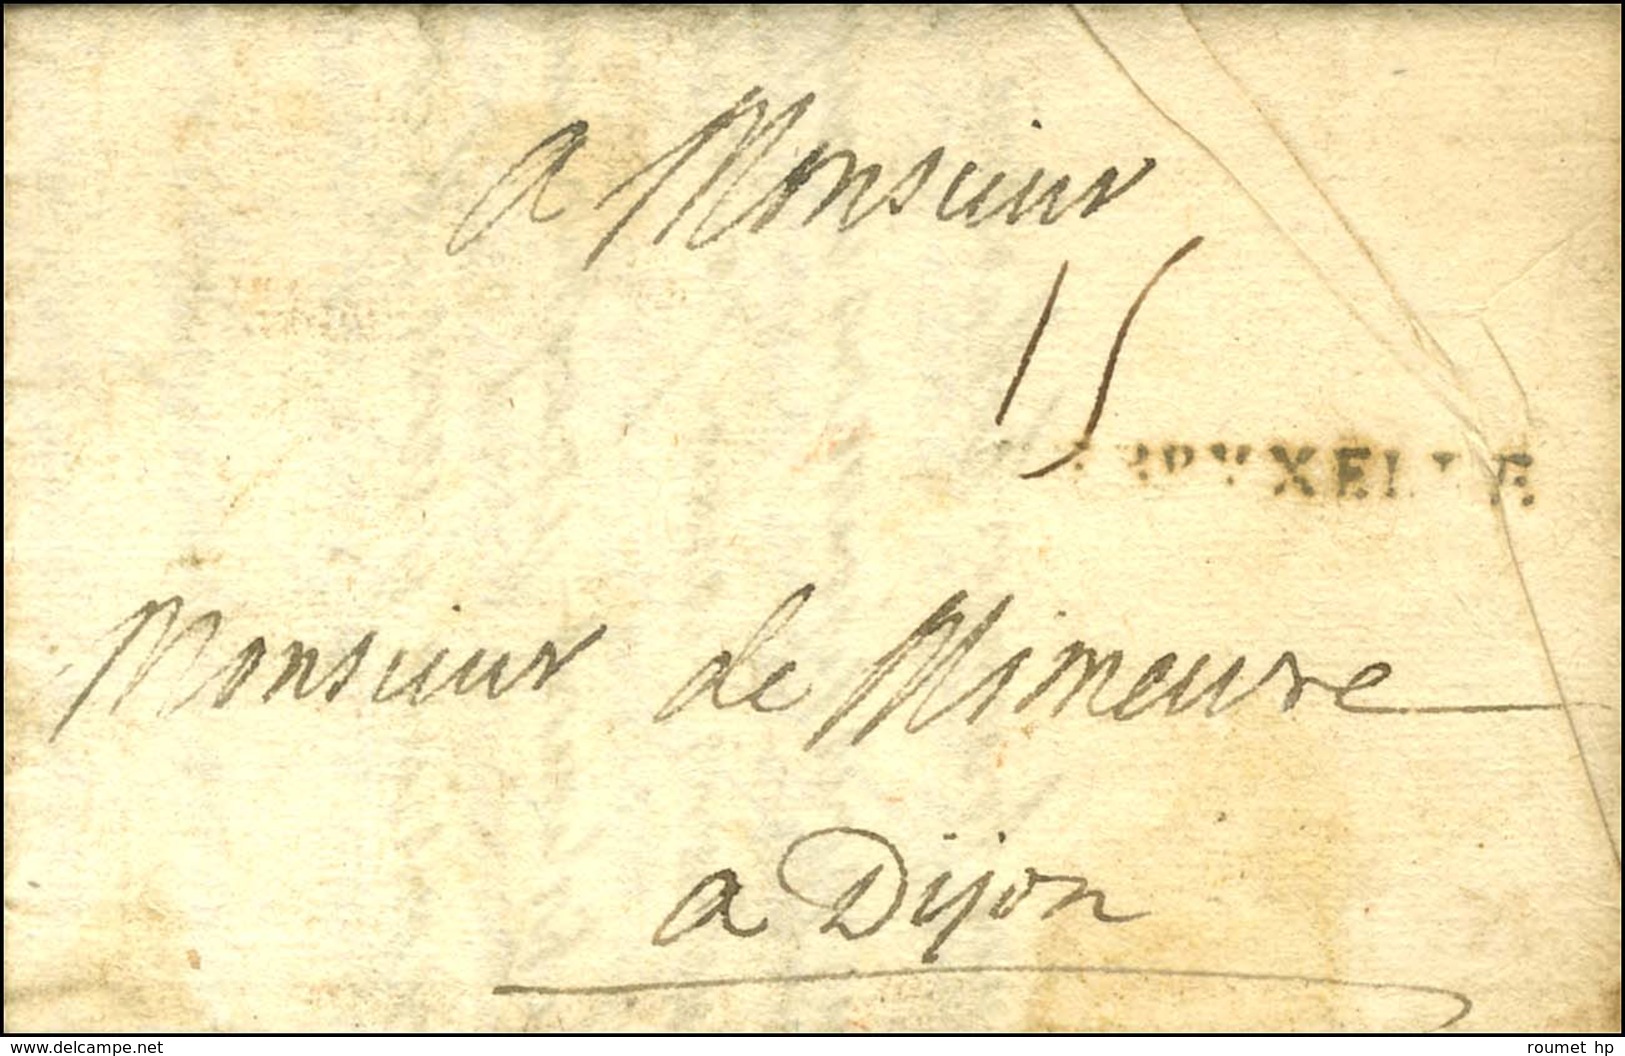 a Monsieur
15
BRUXELLE
Monsieur de Mimeure
a Dijon
www.delcampe.net
roumet hp